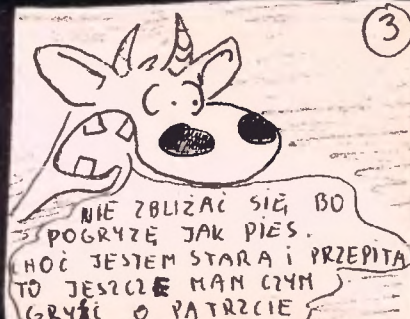 3
NIE ZBLIŻAĆ SIĘ BO
POGRYZĘ JAK PIES.
CHOĆ JESTEM STARA I PRZEPITA
TO JESZCZE MAM CZYM
GRYŹĆ O PATRZCIE